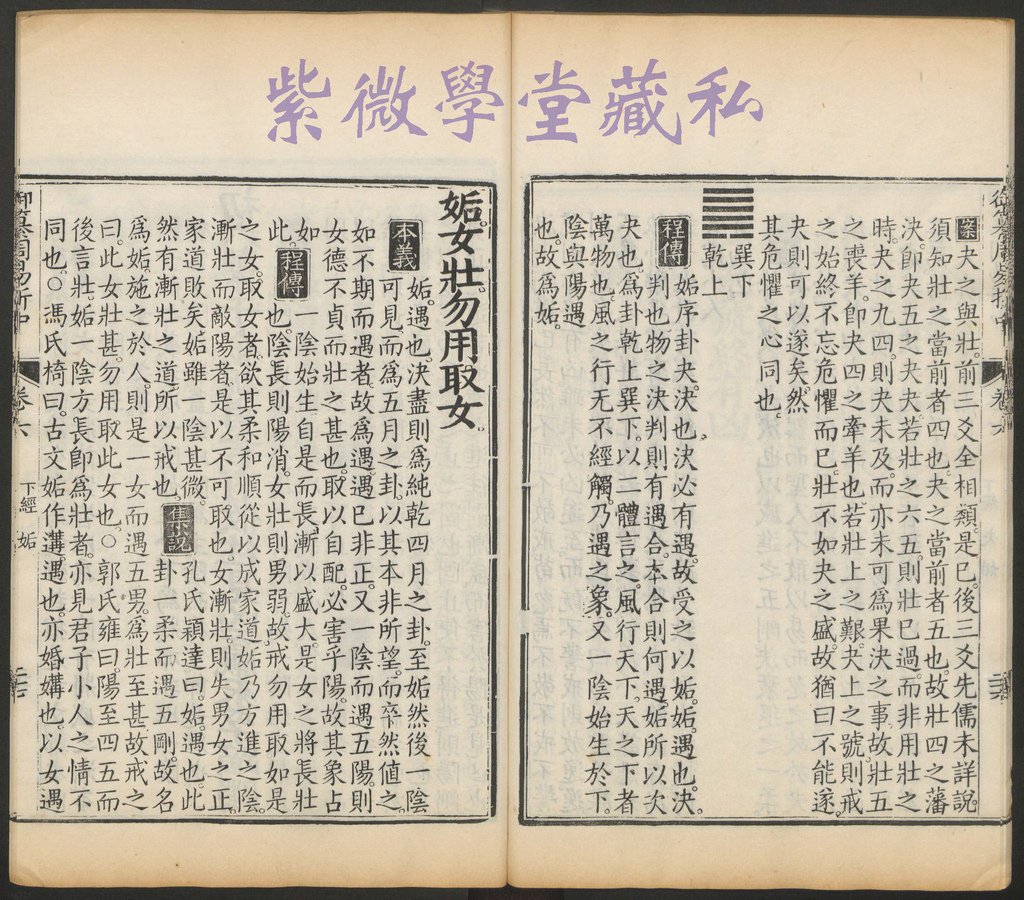 紫微學堂藏私
案夬之與壯。前三爻全相類。是已。後三爻先儒未詳說。
須知壯之當前者四也。夬之當前者五也。故壯四之藩
決。卽夬五之夬夬。若壯之六五。則壯已過。而非用壯之
時。夬之九四。則夬未及。而亦未可爲果決之事。故壯五
之喪羊。卽夬四之牽羊也。若壯上之艱。夬上之號。則戒
之始終不忘危懼而已。壯不如夬之盛。故猶曰不能遂。
夬則可以遂矣。然
其危懼之心同也。
巽下
乾上
程傳 姤序卦夬。決也。決必有遇。故受之以姤。姤。遇也。決。
判也。物之決判。則有遇合。本合則何遇。姤所以次
夬也。爲卦乾上巽下。以二體言之。風行天下。天之下者
萬物也。風之行无不經觸。乃遇之象。又一陰始生於下。
陰與陽遇
也。故爲姤。
姤。女壯。勿用取女。
本義 姤。遇也。決盡則爲純乾。四月之卦。至姤然後一陰
可見。而爲五月之卦。以其本非所望。而卒然値之。
如不期而遇者。故爲遇。遇已非正。又一陰而遇五陽。則
女德不貞而壯之甚也。取以自配。必害乎陽。故其象占
如 程傳 一陰始生。自是而長。漸以盛大。是女之將長壯
此。 也。陰長則陽消。女壯則男弱。故戒勿用取如是
之女。取女者。欲其柔和順從。以成家道。姤乃方進之陰。
漸壯而敵陽者。是以不可取也。女漸壯。則失男女之正。
家道敗矣。姤雖一陰甚微。 集說 孔氏穎達曰。姤。遇也。此
然有漸壯之道。所以戒也。 卦一柔而遇五剛。故名
爲姤。施之於人。則是一女而遇五男。爲壯至甚。故戒之
曰。此女壯甚。勿用取此女也。○郭氏雍曰。陽至四五而
後言壯。姤一陰方長。卽爲壯者。亦見君子小人之情不
同也。○馮氏椅曰。古文姤作遘。遇也。亦婚媾也。以女遇
卷六
下經 姤